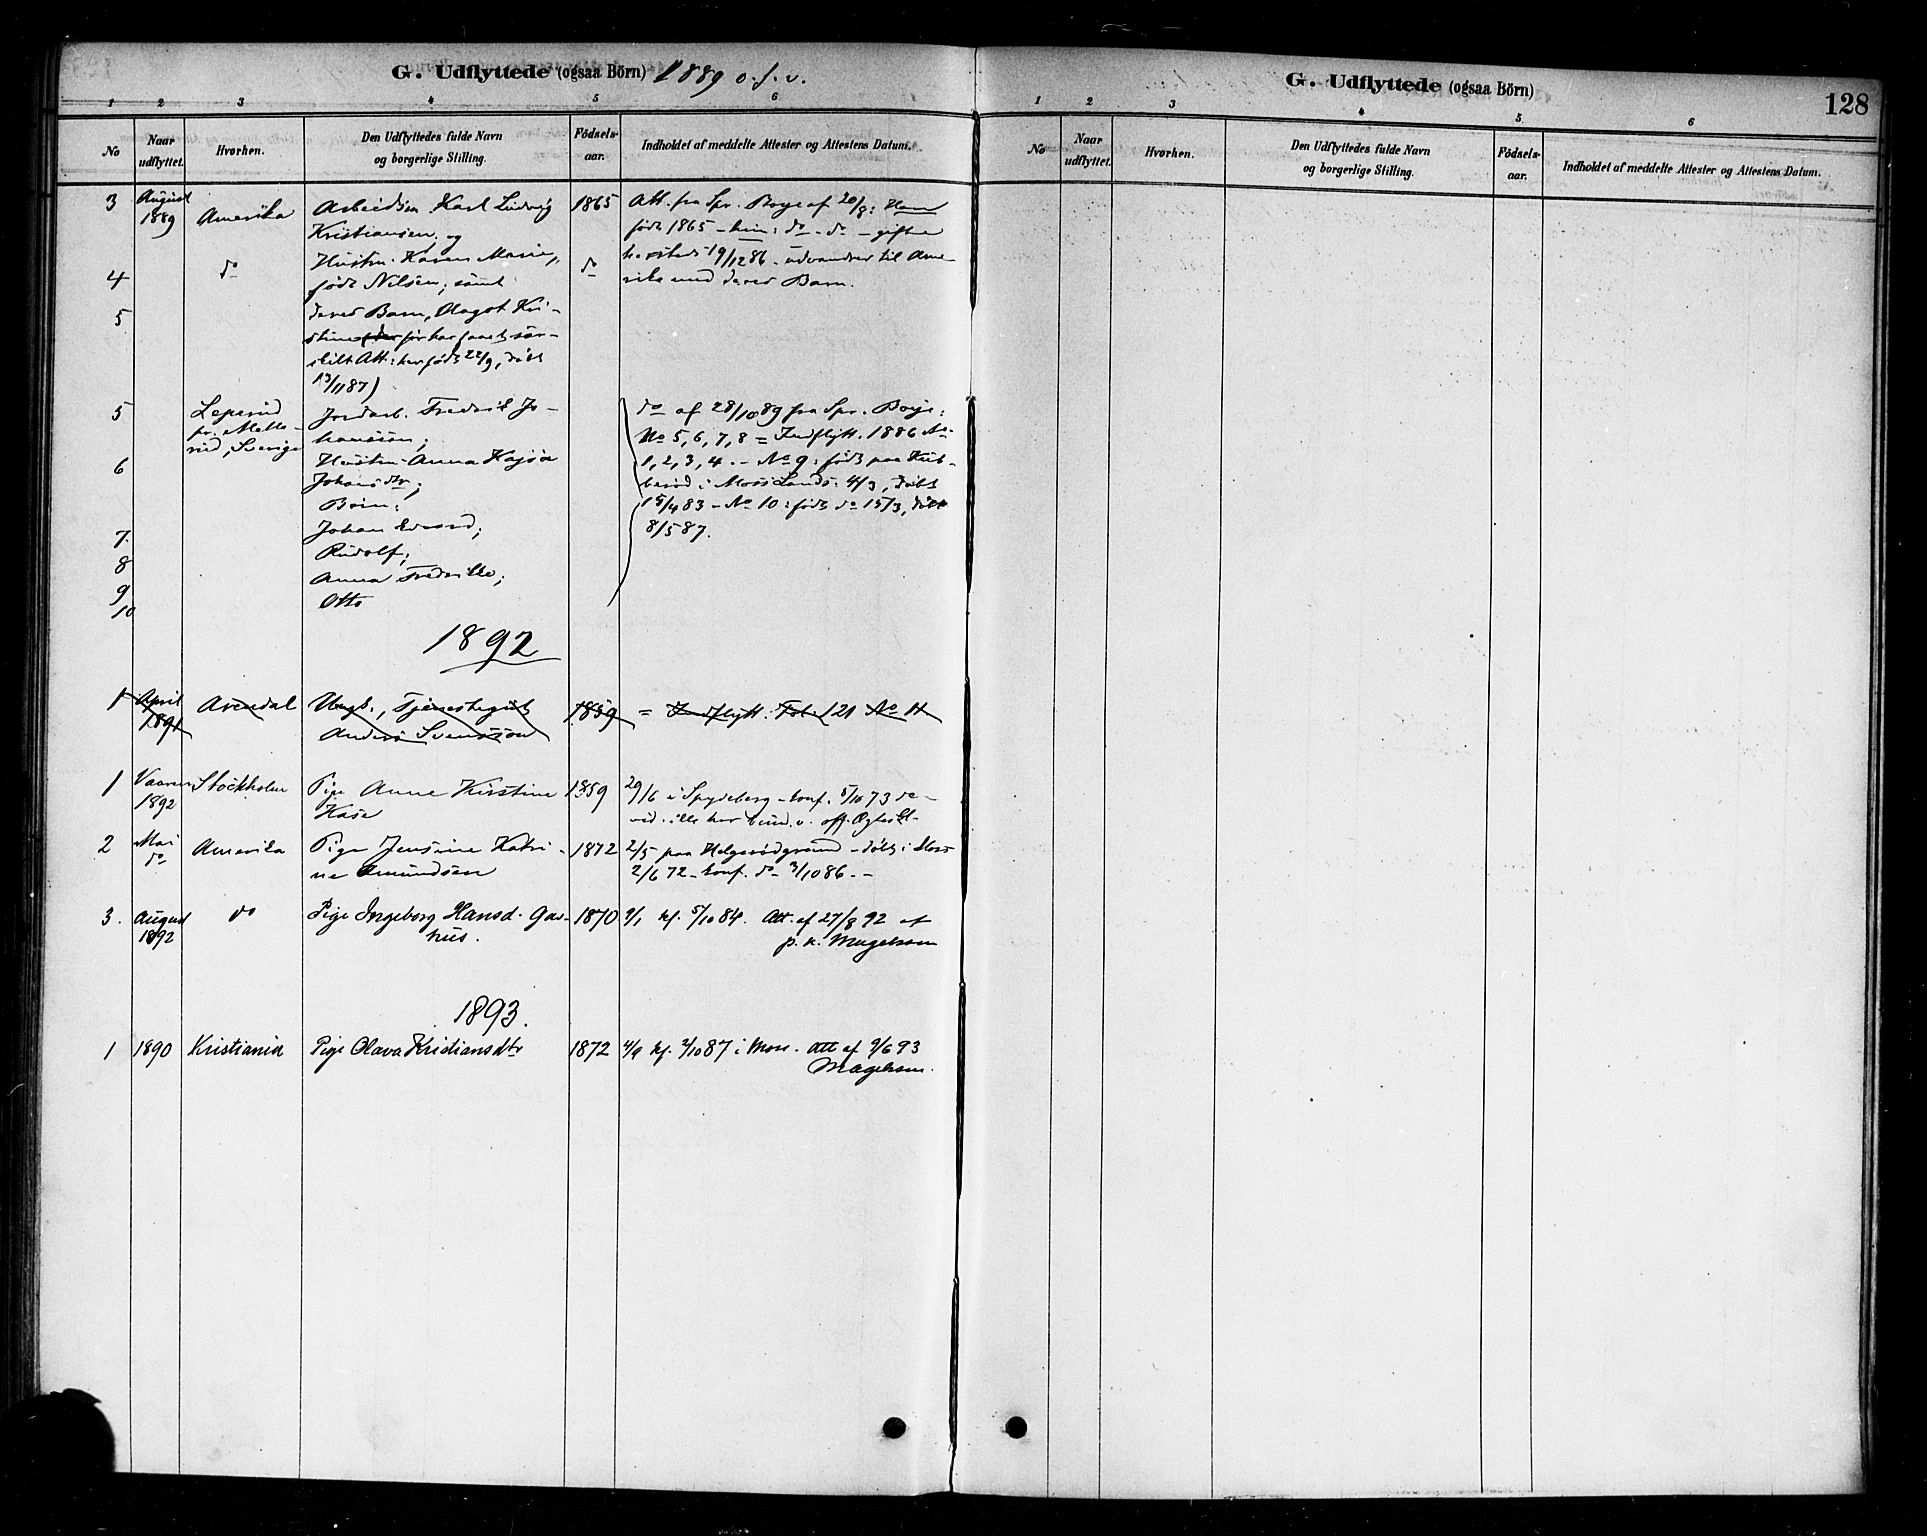 G. Udflyttede (ogsaa Börn) 1889 o.s.v.
1 2 3 4 5 6
No
Naar udflyttet.
Hvorhen.
Den Udflyttedes fulde Navn og borgerlige Stilling.
Födsels-aar.
Indholdet af meddelte Attester og Attestens Datum.
3 August 1889 Amerika Arbeidsm. Karl Ludvig 1865 Att. fra Spr. Boye af 20/8: Han
Kristiansen, og født 1865 - hun: do - do - gifte
4 do Hustru Karen Marie, do 19/12 86 - udvandrer til Ame-
født Nilsen; samt rika med deres Barn.
5 deres Barn, Dagot Kri-
stine (der før har faaet sær-
skilt Att.: her født 22/9, døbt
13/11 87)
5 Jordarb. Fredrik Jo- do af 28/10 89 fra Spr. Boye:
hansson; No 5, 6, 7, 8 = Indflytt. 1886 No
rud, Sverige
6 Hustru Anna Kajsa 1, 2, 3, 4. - No 9: født paa
Johansdtr; i Moss Lands: 4/3, døbt
Børn: 15/4 83 - No 10: født do 15/3, døbt
7. Johan Edvard; 8/5 87.
8 Rudolf;
9 Anna Fredrikke;
10 Otto
1892
1 April 1891 Arendal Ungk., Tjenestegut 1859 = Indflytt. Fol. 121 No 11
Anders Svensson
1 Vaaren 1892 Stockholm Pige Anne Kirstine 1859 29/6 i Spydeberg - konf. 5/10 73 do
Kase
2 Mai do Amerika Pige Jensine Katri- 1872 2/5 paa Helgerødgrund - døbt i Moss
ne Amundsen 2/6 72 - konf. do 3/10 86. -
3. August 1892 do Pige Ingeborg Hansd. Gas- 1870 9/1 kf. 5/10 84. Att. af 27/8 92 af
hus. p. k. Magelssen
1893.
1 1890 Kristiania Pige Olava Kristiansdtr 1872 4/9 kf. 2/10 87 i Moss. Att af 9/6 93
Magelssen.
G. Udflyttede (ogsaa Börn)
128
1 2 3 4 5 6
No
Naar udflyttet.
Hvorhen.
Den Udflyttedes fulde Navn og borgerlige Stilling.
Födsels-aar.
Indholdet af meddelte Attester og Attestens Datum.